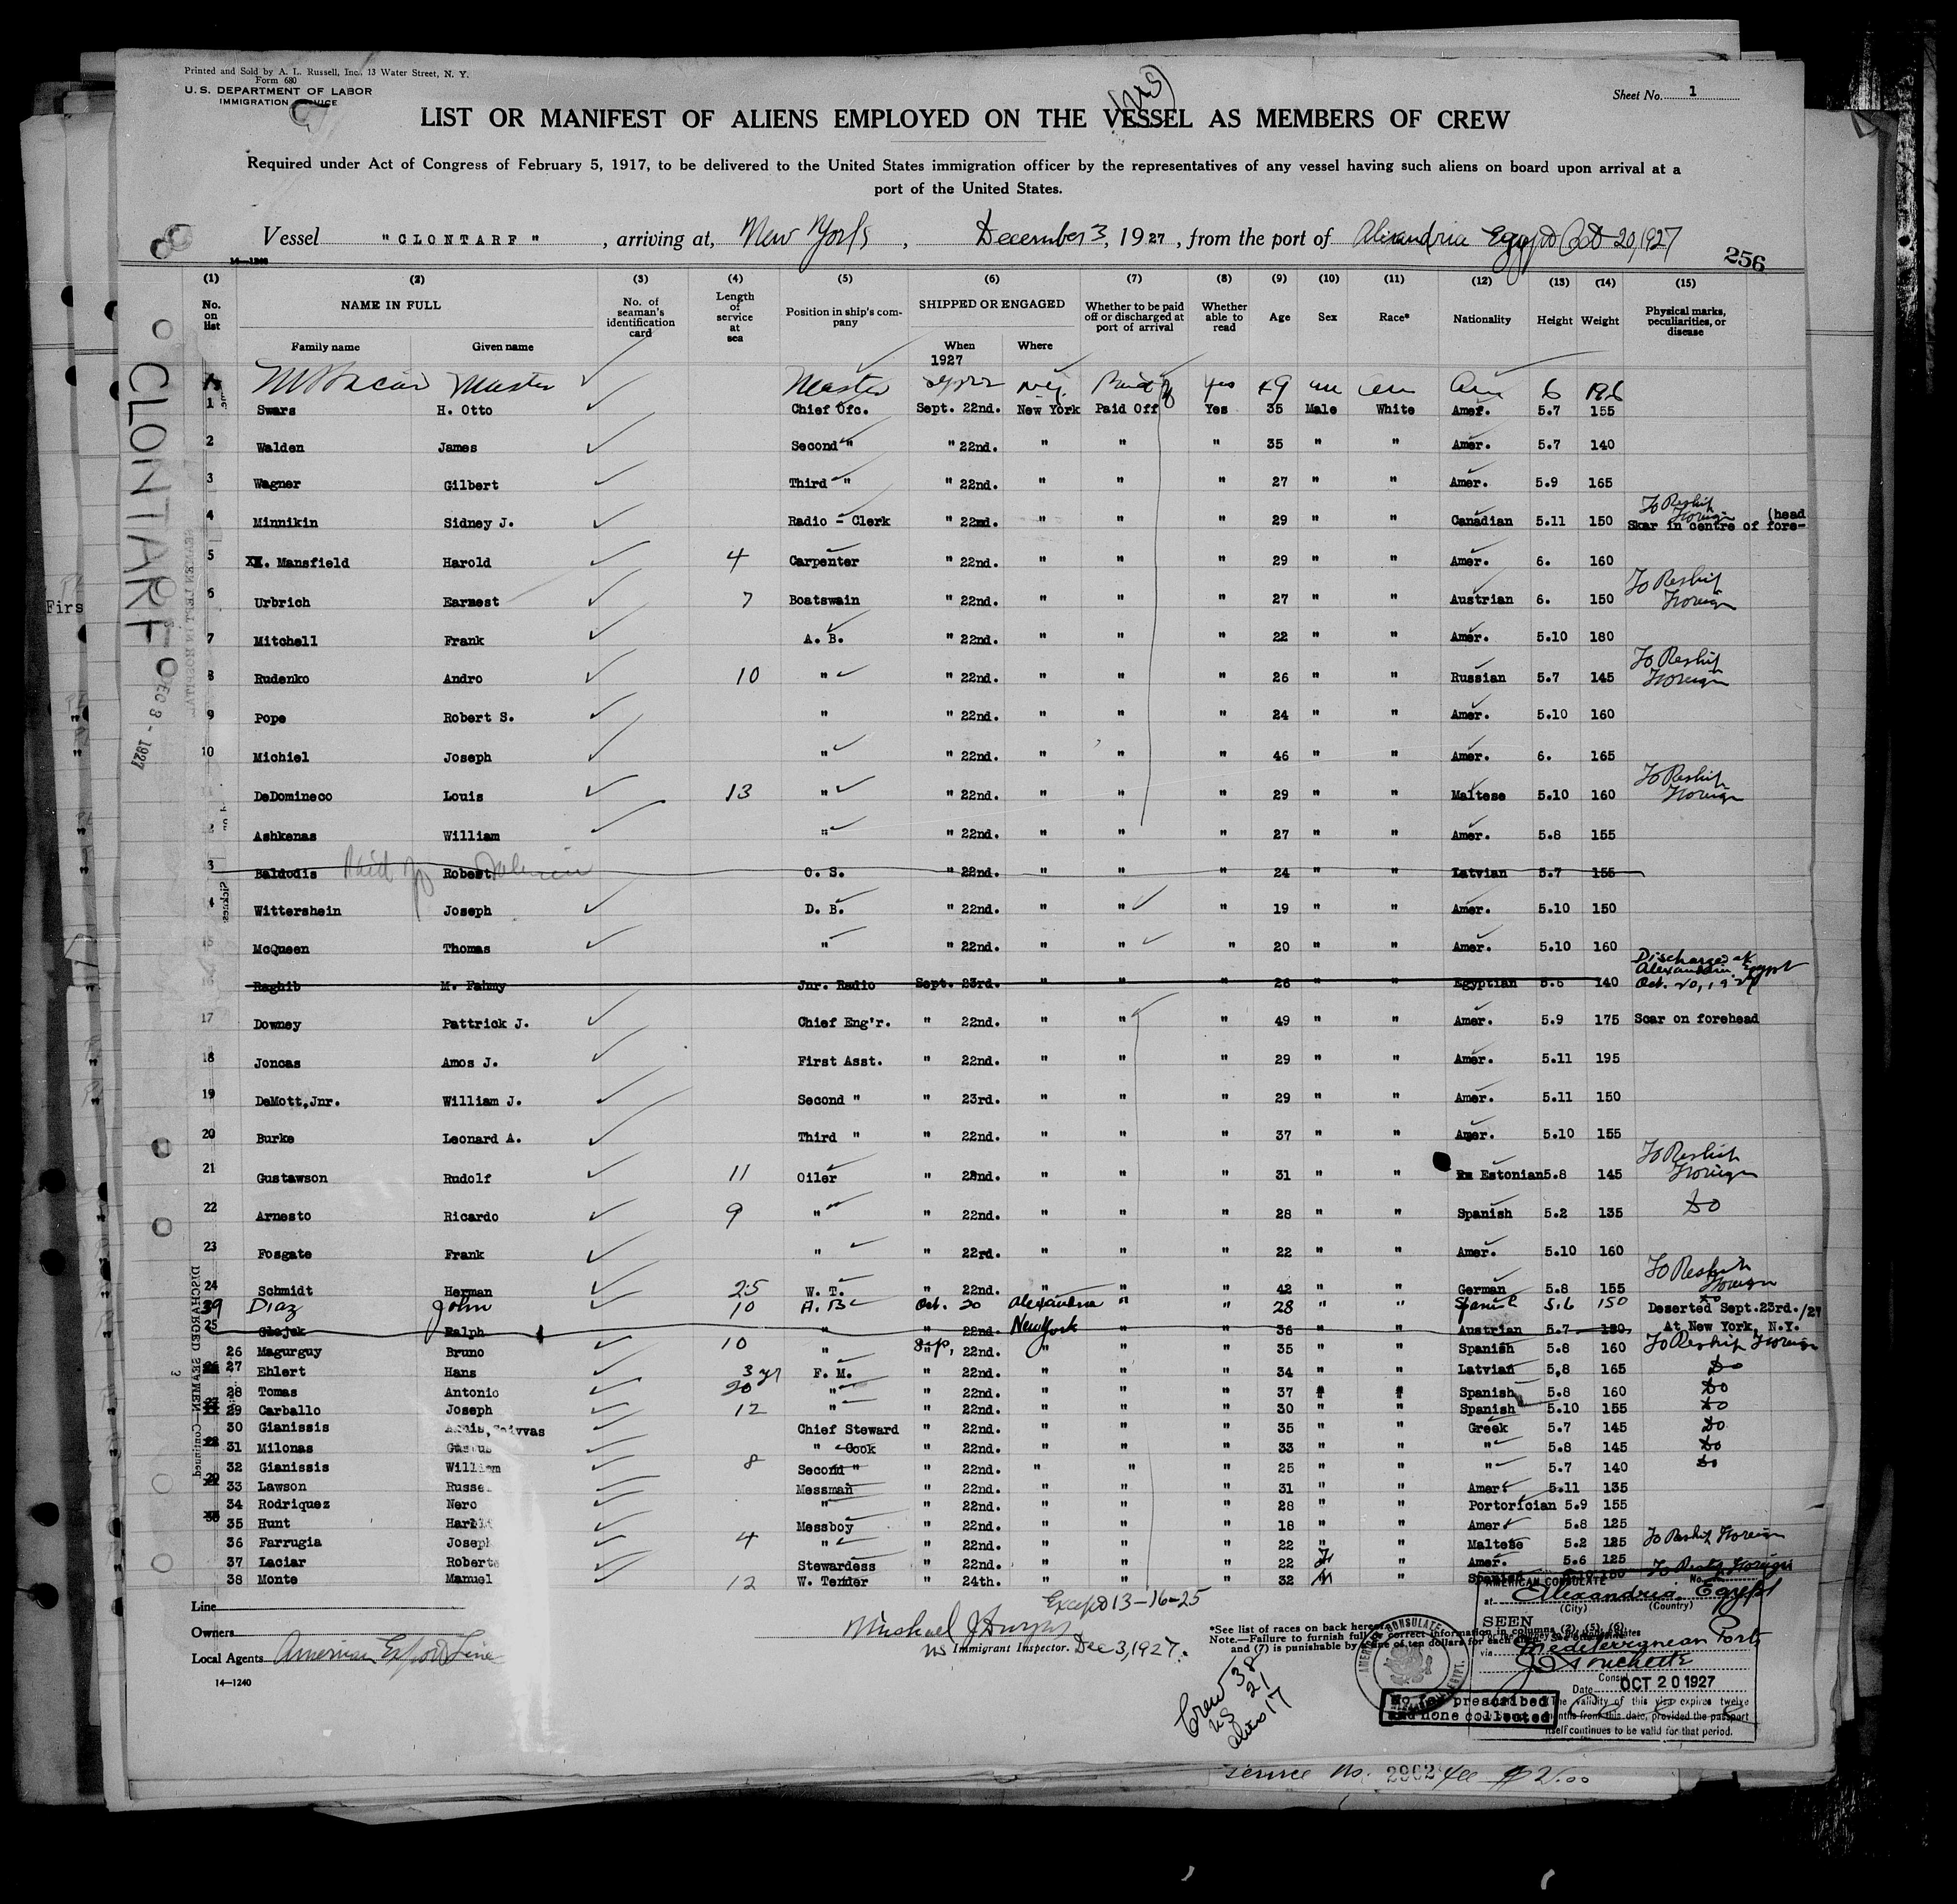 Printed and Sold by A. L. Russell, Inc., 13 Water Street, N. Y.
Form 680
U. S. DEPARTMENT OF LABOR
IMMIGRATION SERVICE
Sheet No. 1
LIST OR MANIFEST OF ALIENS EMPLOYED ON THE VESSEL AS MEMBERS OF CREW
Required under Act of Congress of February 5, 1917, to be delivered to the United States immigration officer by the representatives of any vessel having such aliens on board upon arrival at a
port of the United States.
Vessel "CLONTARF", arriving at, New York, December 3, 1927, from the port of Alexandria Egypt Oct 20, 1927
256
(1) (2) (3) (4) (5) (6) (7) (8) (9) (10) (11) (12) (13) (14) (15)
No. on list NAME IN FULL Family name Given name No. of seaman's identification card Length of service at sea Position in ship's company SHIPPED OR ENGAGED When Where Whether to be paid off or discharged at port of arrival Whether able to read Age Sex Race* Nationality Height Weight Physical marks, peculiarities, or disease
1927
Master Master Paid yes 49 6
1 Swars H. Otto Chief Ofc. Sept. 22nd. New York Paid Off Yes 35 Male White Amer. 5.7 155
2 Walden James Second " " 22nd. " " " 35 " " Amer. 5.7 140
3 Wagner Gilbert Third " " 22nd. " " " 27 " " Amer. 5.9 165
4 Minnikin Sidney J. Radio - Clerk " 22nd. " " " 29 " " Canadian 5.11 150 To Reship Foreign Skar in centre of fore- (head
5 XX. Mansfield Harold 4 Carpenter " 22nd. " " " 29 " " Amer. 6. 160
6 Urbrich Earnest 7 Boatswain " 22nd. " " " 27 " " Austrian 6. 150 To Reship Foreign
7 Mitchell Frank A. B. " 22nd. " " " 22 " " Amer. 5.10 180
8 Rudenko Andro 10 " " 22nd. " " " 26 " " Russian 5.7 145 To Reship Foreign
9 Pope Robert S. " " 22nd. " " " 24 " " Amer. 5.10 160
10 Michiel Joseph " " 22nd. " " " 46 " " Amer. 6. 165
DeDomineco Louis 13 " " 22nd. " " " 29 " " Maltese 5.10 160 To Reship Foreign
2 Ashkenas William " " 22nd. " " " 27 " " Amer. 5.8 155
3 Baldodis Robert Paid off O. S. " 22nd. " " " 24 " " Latvian 5.7 155
4 Wittershein Joseph D. B. " 22nd. " " " 19 " " Amer. 5.10 150
15 McQueen Thomas " " 22nd. " " " 20 " " Amer. 5.10 160
16 Raghib M. Fahmy Jnr. Radio Sept. 23rd. " " " 26 " " Egyptian 5.6 140 Discharged at Alexandria, Egypt Oct. 20, 1927
17 Downey Pattrick J. Chief Eng'r. " 22nd. " " " 49 " " Amer. 5.9 175 Scar on forehead
18 Joncas Amos J. First Asst. " 22nd. " " " 29 " " Amer. 5.11 195
19 DeMott,Jnr. William J. Second " " 23rd. " " " 29 " " Amer. 5.11 150
20 Burke Leonard A. Third " " 22nd. " " " 37 " " Amer. 5.10 155
21 Gustawson Rudolf 11 Oiler " 22nd. " " " 31 " " Estonian 5.8 145 To Reship Foreign
22 Arnesto Ricardo 9 " " 22nd. " " " 28 " " Spanish 5.2 135 do
23 Fosgate Frank " " 22rd. " " " 22 " " Amer. 5.10 160
24 Schmidt Herman 25 W. T. " 22nd. " " " 42 " " German 5.8 155 To Reship Foreign
39 Diaz John 10 A. B. Oct. 20 Alexandria " " 28 " " Spanish 5.6 150 do
25 Ralph " " 22nd. New York " " 36 " " Austrian 5.7 150 Deserted Sept.23rd./27 At New York, N.Y.
26 Magurguy Bruno 10 " Sep. 22nd. " " " 35 " " Spanish 5.8 160 To Reship Foreign
27 Ehlert Hans 3 yr F. M. " 22nd. " " " 34 " " Latvian 5,8 165 do
28 Tomas Antonio 20 " " 22nd. " " " 37 " " Spanish 5.8 160 do
29 Carballo Joseph 12 " " 22nd. " " " 30 " " Spanish 5.10 155 do
30 Gianissis Chief Steward " 22nd. " " " 35 " " Greek 5.7 145 do
31 Milonas " Cook " 22nd. " " " 33 " " " 5.8 145 do
32 Gianissis William 8 Second " " 22nd. " " " 25 " " " 5.7 140 do
33 Lawson Russel Messman " 22nd. " " " 31 " " Amer. 5.11 135
34 Rodriquez Nero " " 22nd. " " " 28 " " Portorician 5.9 155
35 Hunt Messboy " 22nd. " " " 18 " " Amer. 5.8 125
36 Farrugia Joseph 4 " " 22nd. " " " 22 " " Maltese 5.2 125 To Reship Foreign
37 Laciar Roberta Stewardess " 22nd. " " " 22 F " Amer. 5.6 125
38 Monte Manuel 12 W. Tender " 24th. " " " 32 M " Spanish 5.10 150 To Reship Foreign
CLONTARF
DEC 3 - 1927
DISCHARGED SEAMEN—Continued
SEAMEN LEFT IN HOSPITAL
Firs
Line
Owners
Local Agents American Export Line
14—1240
Except 13-16-25
US Immigrant Inspector. Dec 3, 1927.
*See list of races on back hereof.
Note.—Failure to furnish full or correct information in columns (3), (5), (6),
and (7) is punishable by a fine of ten dollars for each alien. See other side.
Crew 38
US 21
aliens 17
AMERICAN CONSULATE No.
at Alexandria, Egypt
(City) (Country)
SEEN
via Mediterranean Ports
Consul
Date OCT 20 1927
The validity of this visa expires twelve
months from this date, provided the passport
itself continues to be valid for that period.
No fee prescribed
and none collected
Service No. 2902 fee $2.00